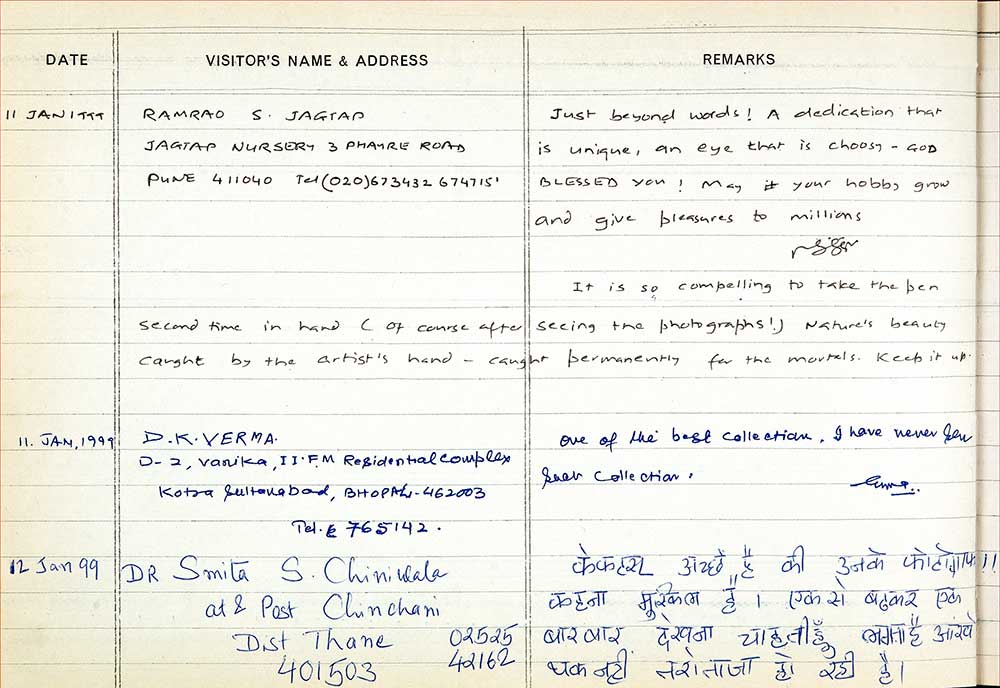 DATE VISITOR'S NAME & ADDRESS REMARKS
11 JAN 1999 RAMRAO S. JAGTAP Just beyond words! A dedication that
JAGTAP NURSERY 3 PHAYRE ROAD is unique, an eye that is choosy - GOD
PUNE 411040 Tel (020) 673432 674715 BLESSED you! May your hobby grow
and give pleasures to millions
It is so compelling to take the pen
second time in hand (of course after seeing the photographs!) Nature's beauty
caught by the artist's hand - caught permanently for the mortals. Keep it up.
11. JAN, 1999 D.K. VERMA. One of the best collection. I have never seen
D-2, Vanika, II.F.M Residential complex such collection.
Kotra Sultanabad, BHOPAL-462003
Tel. 765142.
12 Jan 99 DR Smita S. Chiniwala केकटस अच्छे है की उनके फोटोग्राफ!!
at & Post Chinchani कहना मुश्किल है। एक से बढकर एक
Dist Thane 02525 बार बार देखना चाहती हूँ लगता है आंखे
401503 42162 थक नही तरोताजा हो रही है।